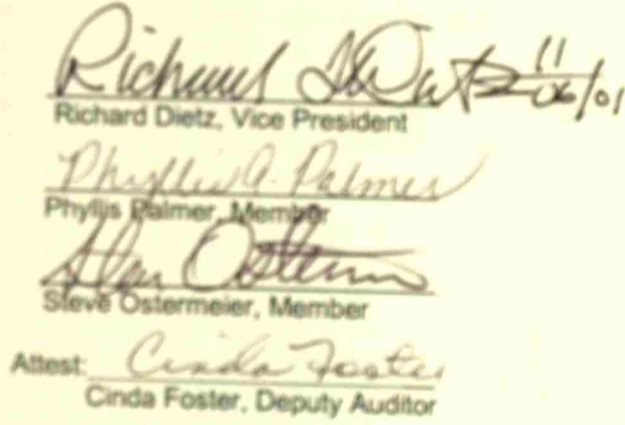 Richard D Dietz 11/06/01
Richard Dietz, Vice President
Phyllis A. Palmer
Phyllis Palmer, Member
Steve Ostermeier
Steve Ostermeier, Member
Attest: Cinda Foster
Cinda Foster, Deputy Auditor